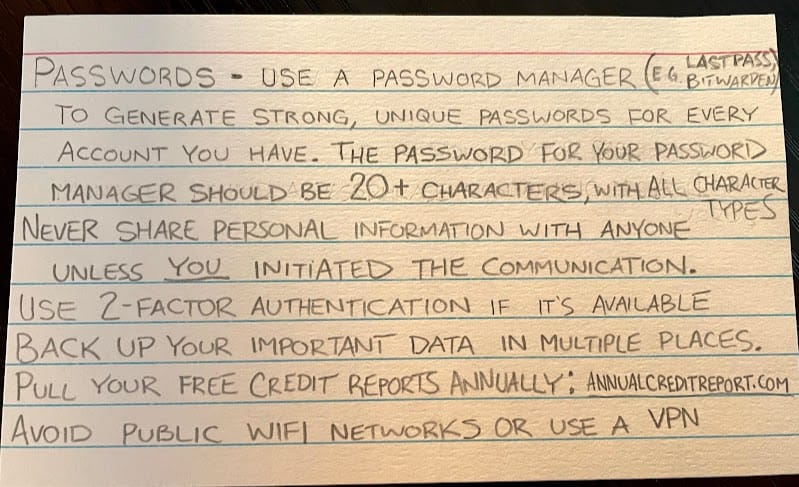 PASSWORDS - USE A PASSWORD MANAGER (E.G. LASTPASS, BITWARDEN)
TO GENERATE STRONG, UNIQUE PASSWORDS FOR EVERY
ACCOUNT YOU HAVE. THE PASSWORD FOR YOUR PASSWORD
MANAGER SHOULD BE 20+ CHARACTERS, WITH ALL CHARACTER TYPES
NEVER SHARE PERSONAL INFORMATION WITH ANYONE
UNLESS YOU INITIATED THE COMMUNICATION.
USE 2-FACTOR AUTHENTICATION IF IT'S AVAILABLE
BACK UP YOUR IMPORTANT DATA IN MULTIPLE PLACES.
PULL YOUR FREE CREDIT REPORTS ANNUALLY: ANNUALCREDITREPORT.COM
AVOID PUBLIC WIFI NETWORKS OR USE A VPN